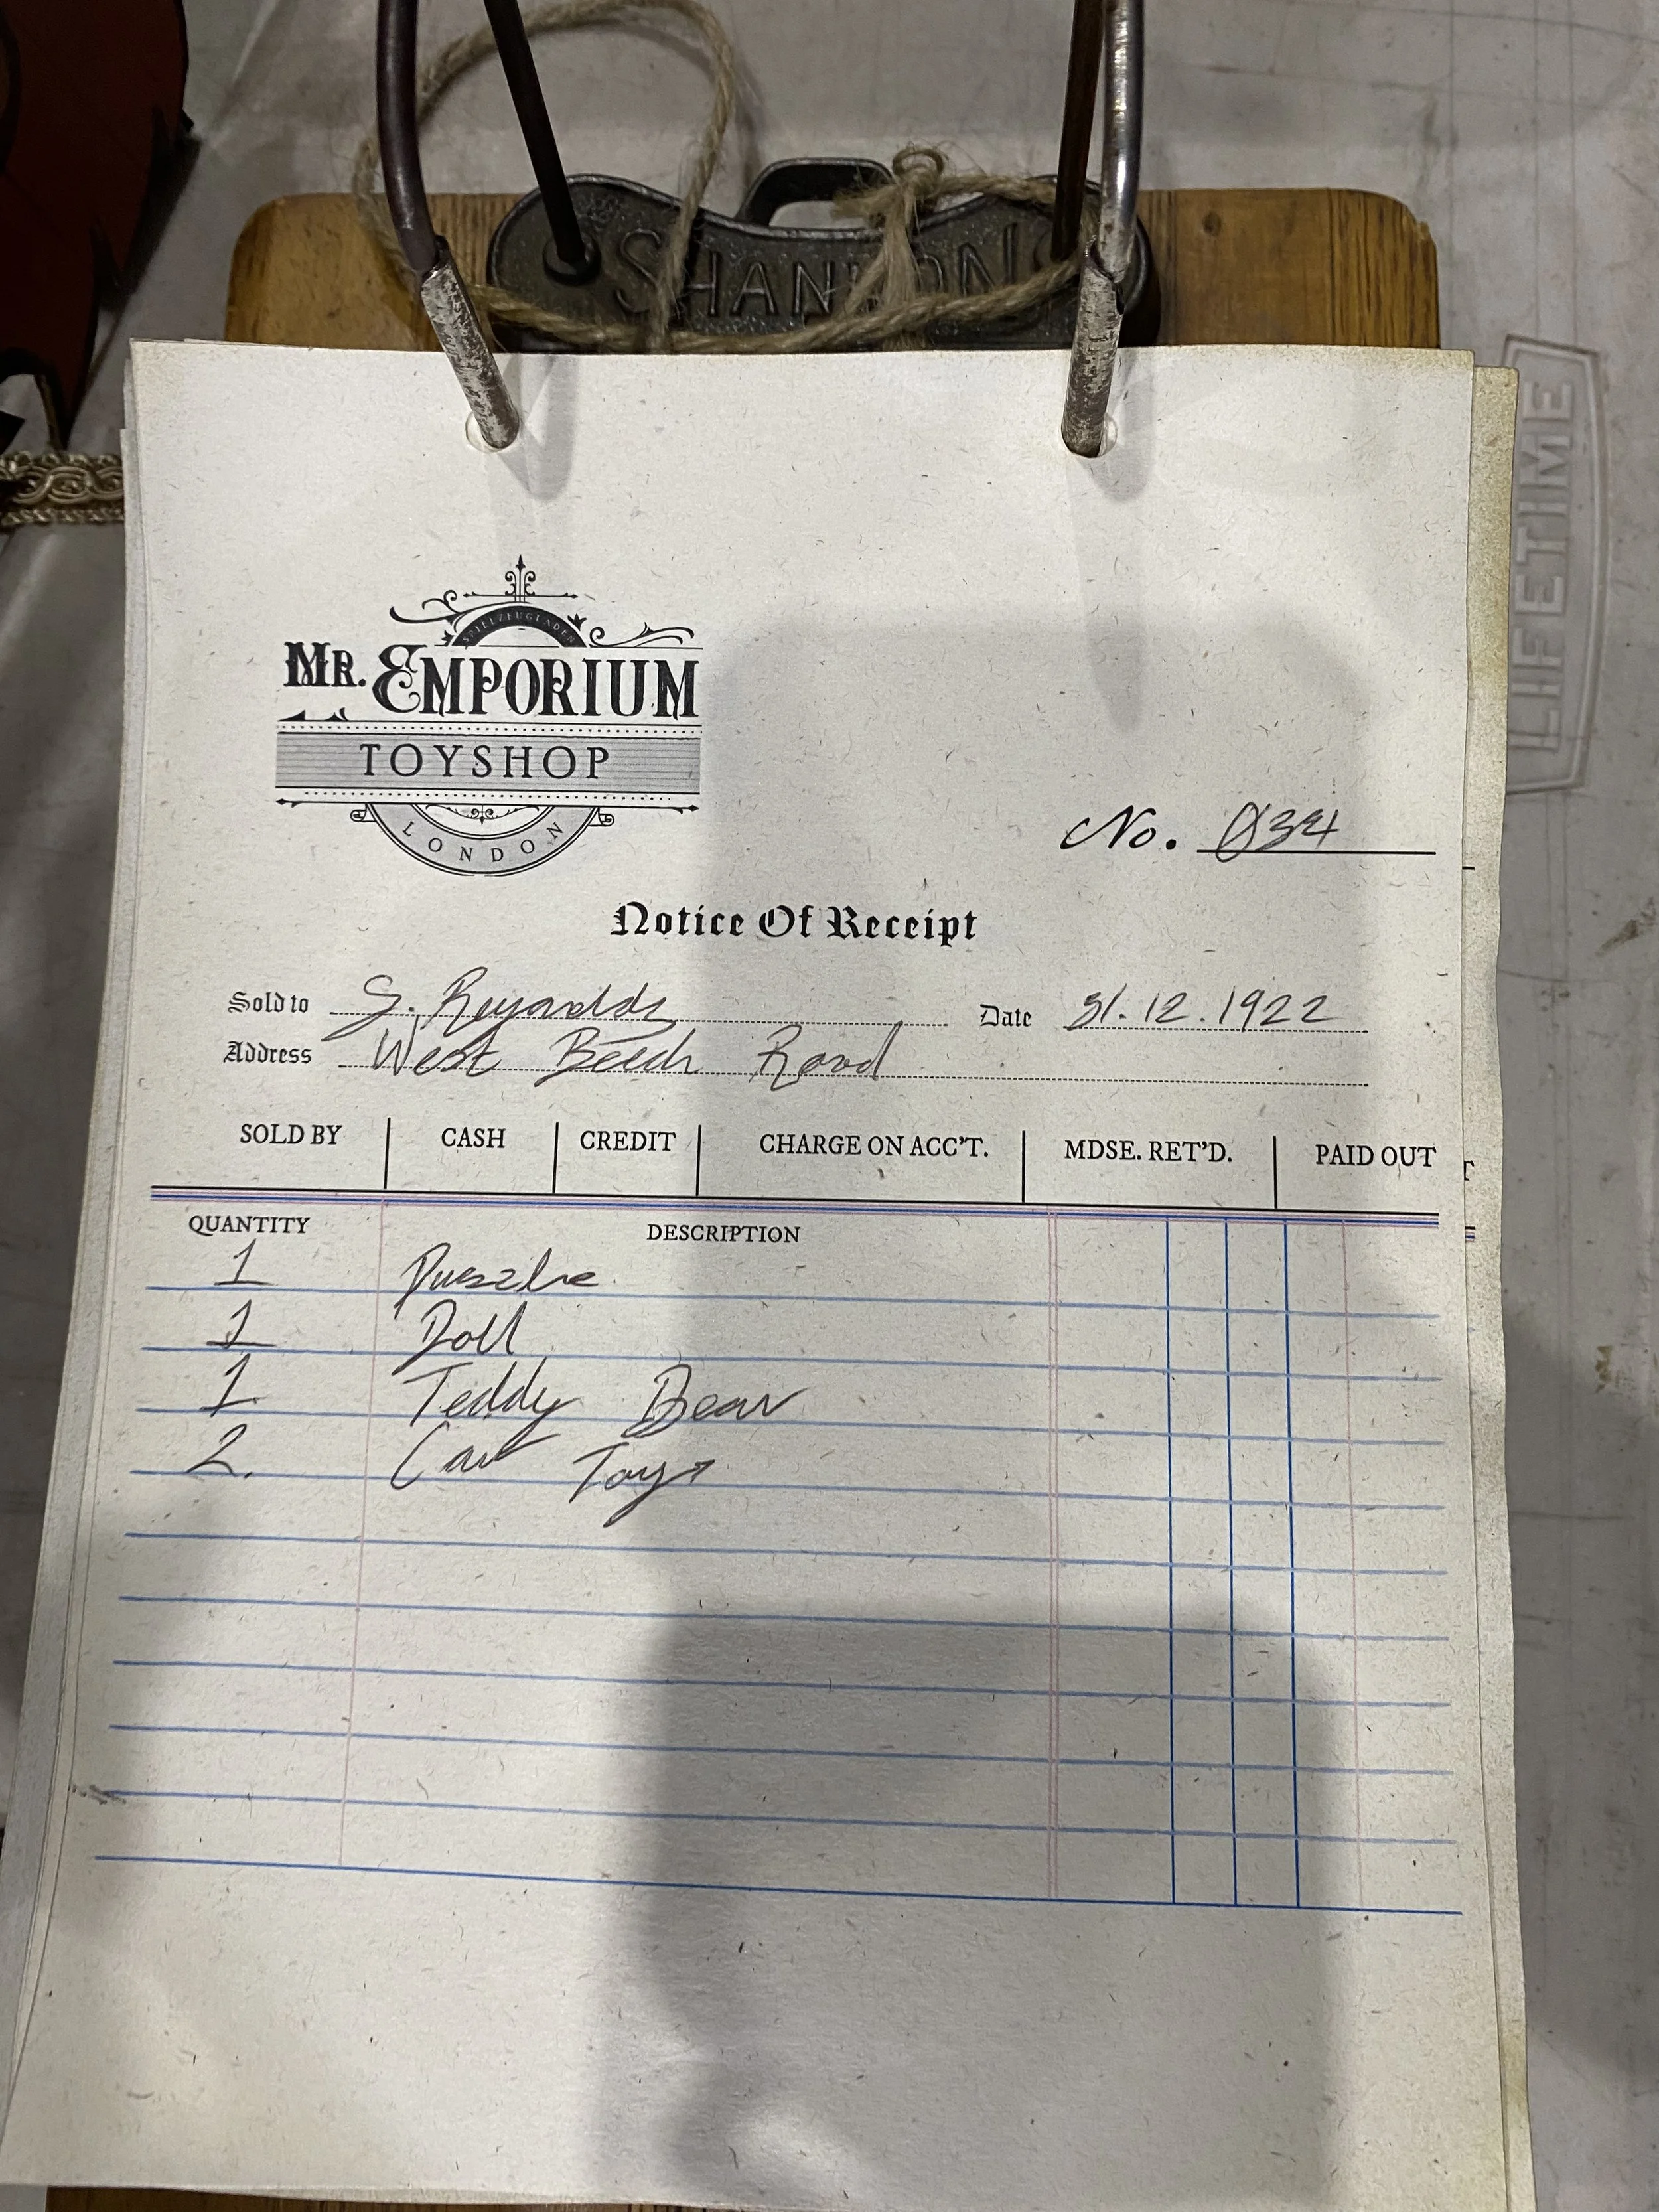 SHANNON
LIFETIME
SPIELZEUGLADEN
MR. EMPORIUM
TOYSHOP
LONDON
No. 034
Notice Of Receipt
Sold to S. Reynolds Date 31.12.1922
Address West Beech Road
SOLD BY CASH CREDIT CHARGE ON ACC'T. MDSE. RET'D. PAID OUT
QUANTITY DESCRIPTION
1 Puzzle
1 Doll
1 Teddy Bear
2. Car Toys